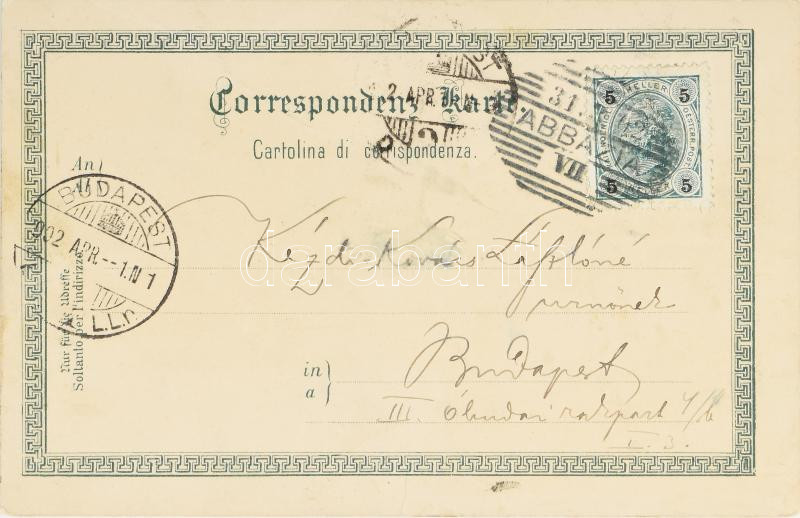 Correspondenz-Karte.
Cartolina di corrispondenza.
5 HELLER 5
5 5
31.
ABBAZIA
VII
2 APR.
An
A
BUDAPEST
902 APR.--1.N 1
Nur für die Adresse
Soltanto per l'indirizzo
Kézdi Kovács Lászlóné
urnőnek
in
a
Budapest
III. Óbudai rakpart
I. 3.
darabanth